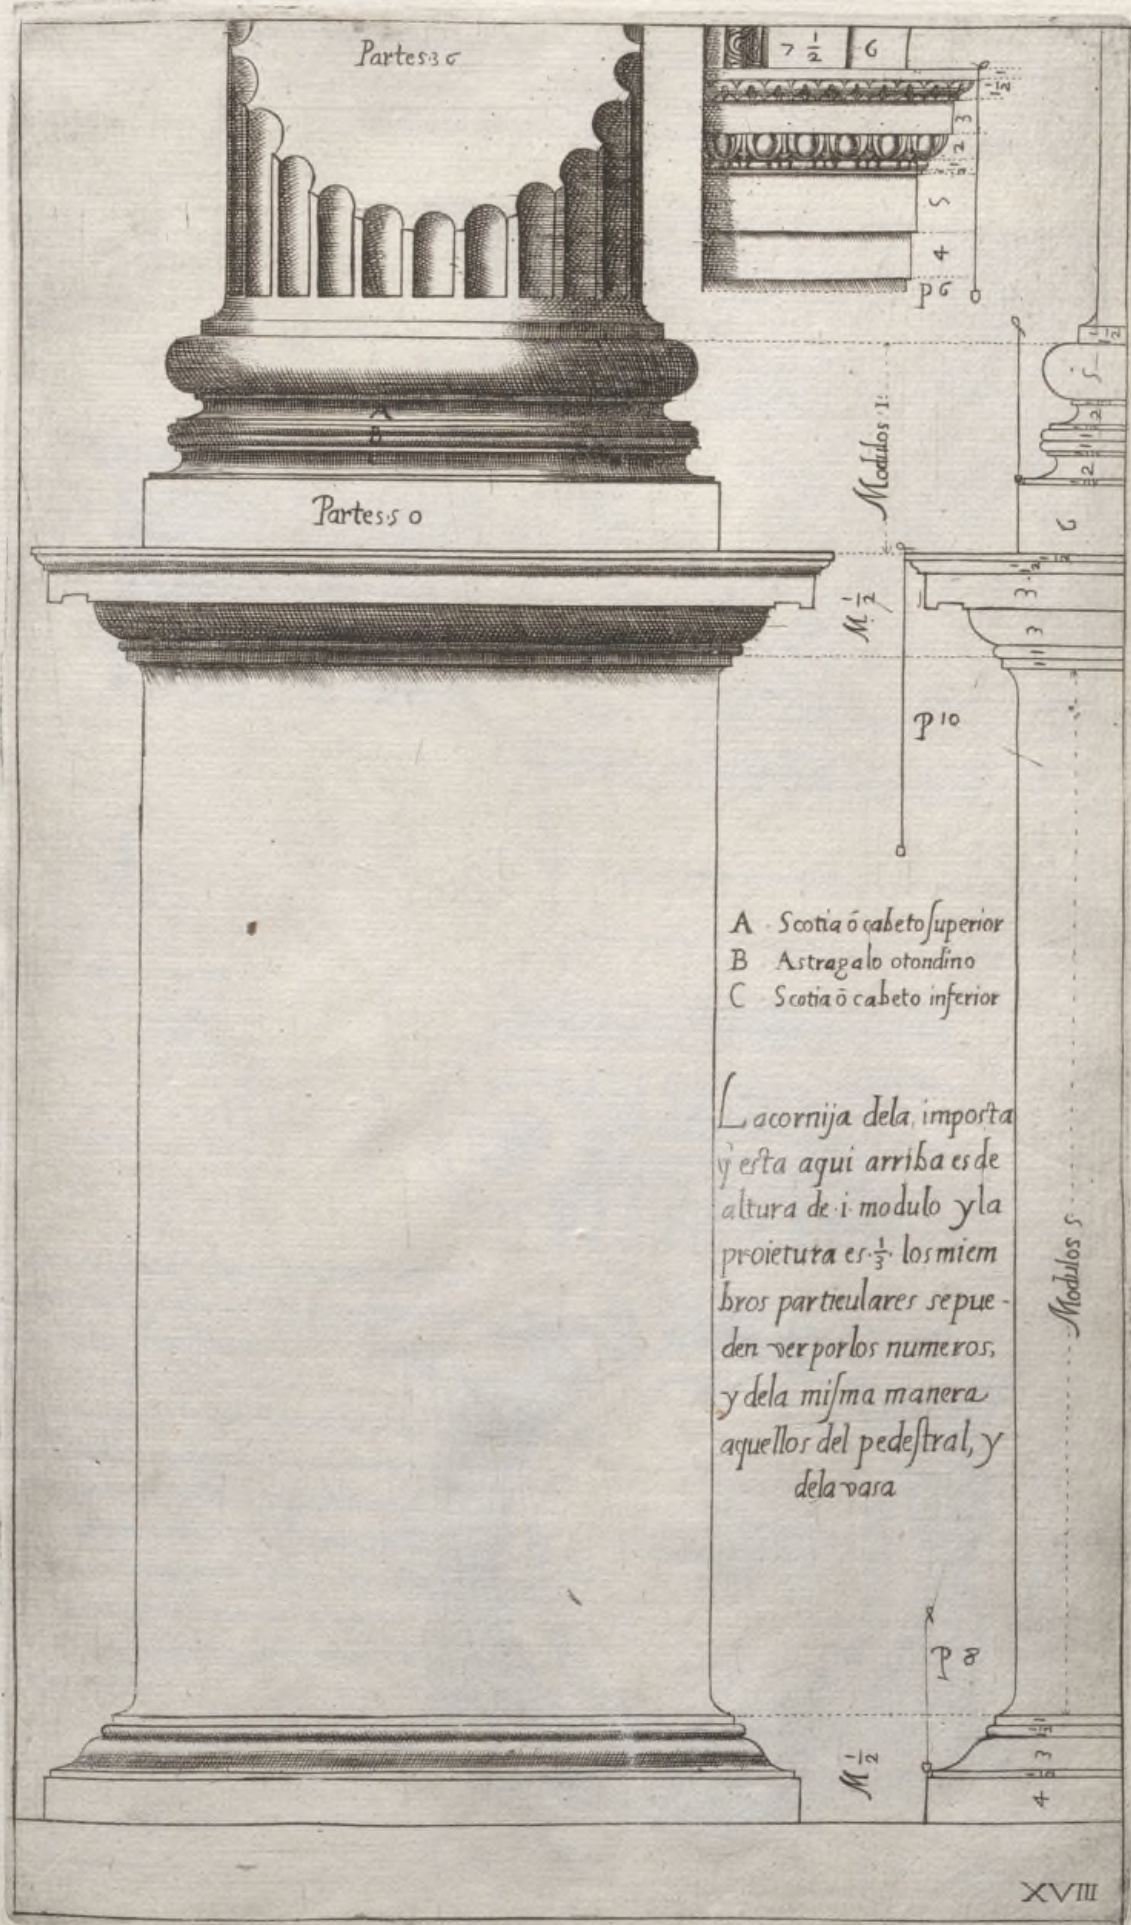 Partes 36
7 1/2 6
1
1 1/2
3
2
1
1/2
5
4
p 6
1 1/2
5
2
1
1
1
2
6
Modulos 1
A
B
Partes 50
M 1/2
1/2
1 1/2
3
3
1
1
p 10
A Scotia ó cabeto ſuperior
B Astragalo otondino
C Scotia ō cabeto inferior
Lacornija dela imposta
q̃ esta aqui arriba es de
altura de·i·modulo y la
proietura es·1/3· los miem
bros particulares sepue-
den ver por los numeros,
y dela miſma manera
aquellos del pedeſtral, y
dela vasa
Modulos 5
p 8
M 1/2
1
1 1/2
3
1/2
4
XVIII